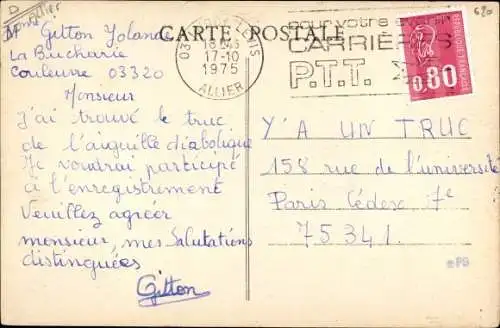 Gitton Yolande
La Bucharie
Couleuvre 03320
Monsieur
J'ai trouvé le truc
de l'aiguille diabolique
Je voudrai participé
à l'enregistrement
Veuillez agréer
monsieur, mes salutations
distinguées
Gitton
CARTE POSTALE
03
LEVIS
18H45
17-10
1975
ALLIER
pour votre avenir
CARRIÈRES
P.T.T.
0,80
Y'A UN TRUC
158 rue de l'université
Paris Cédex 7e
75341.